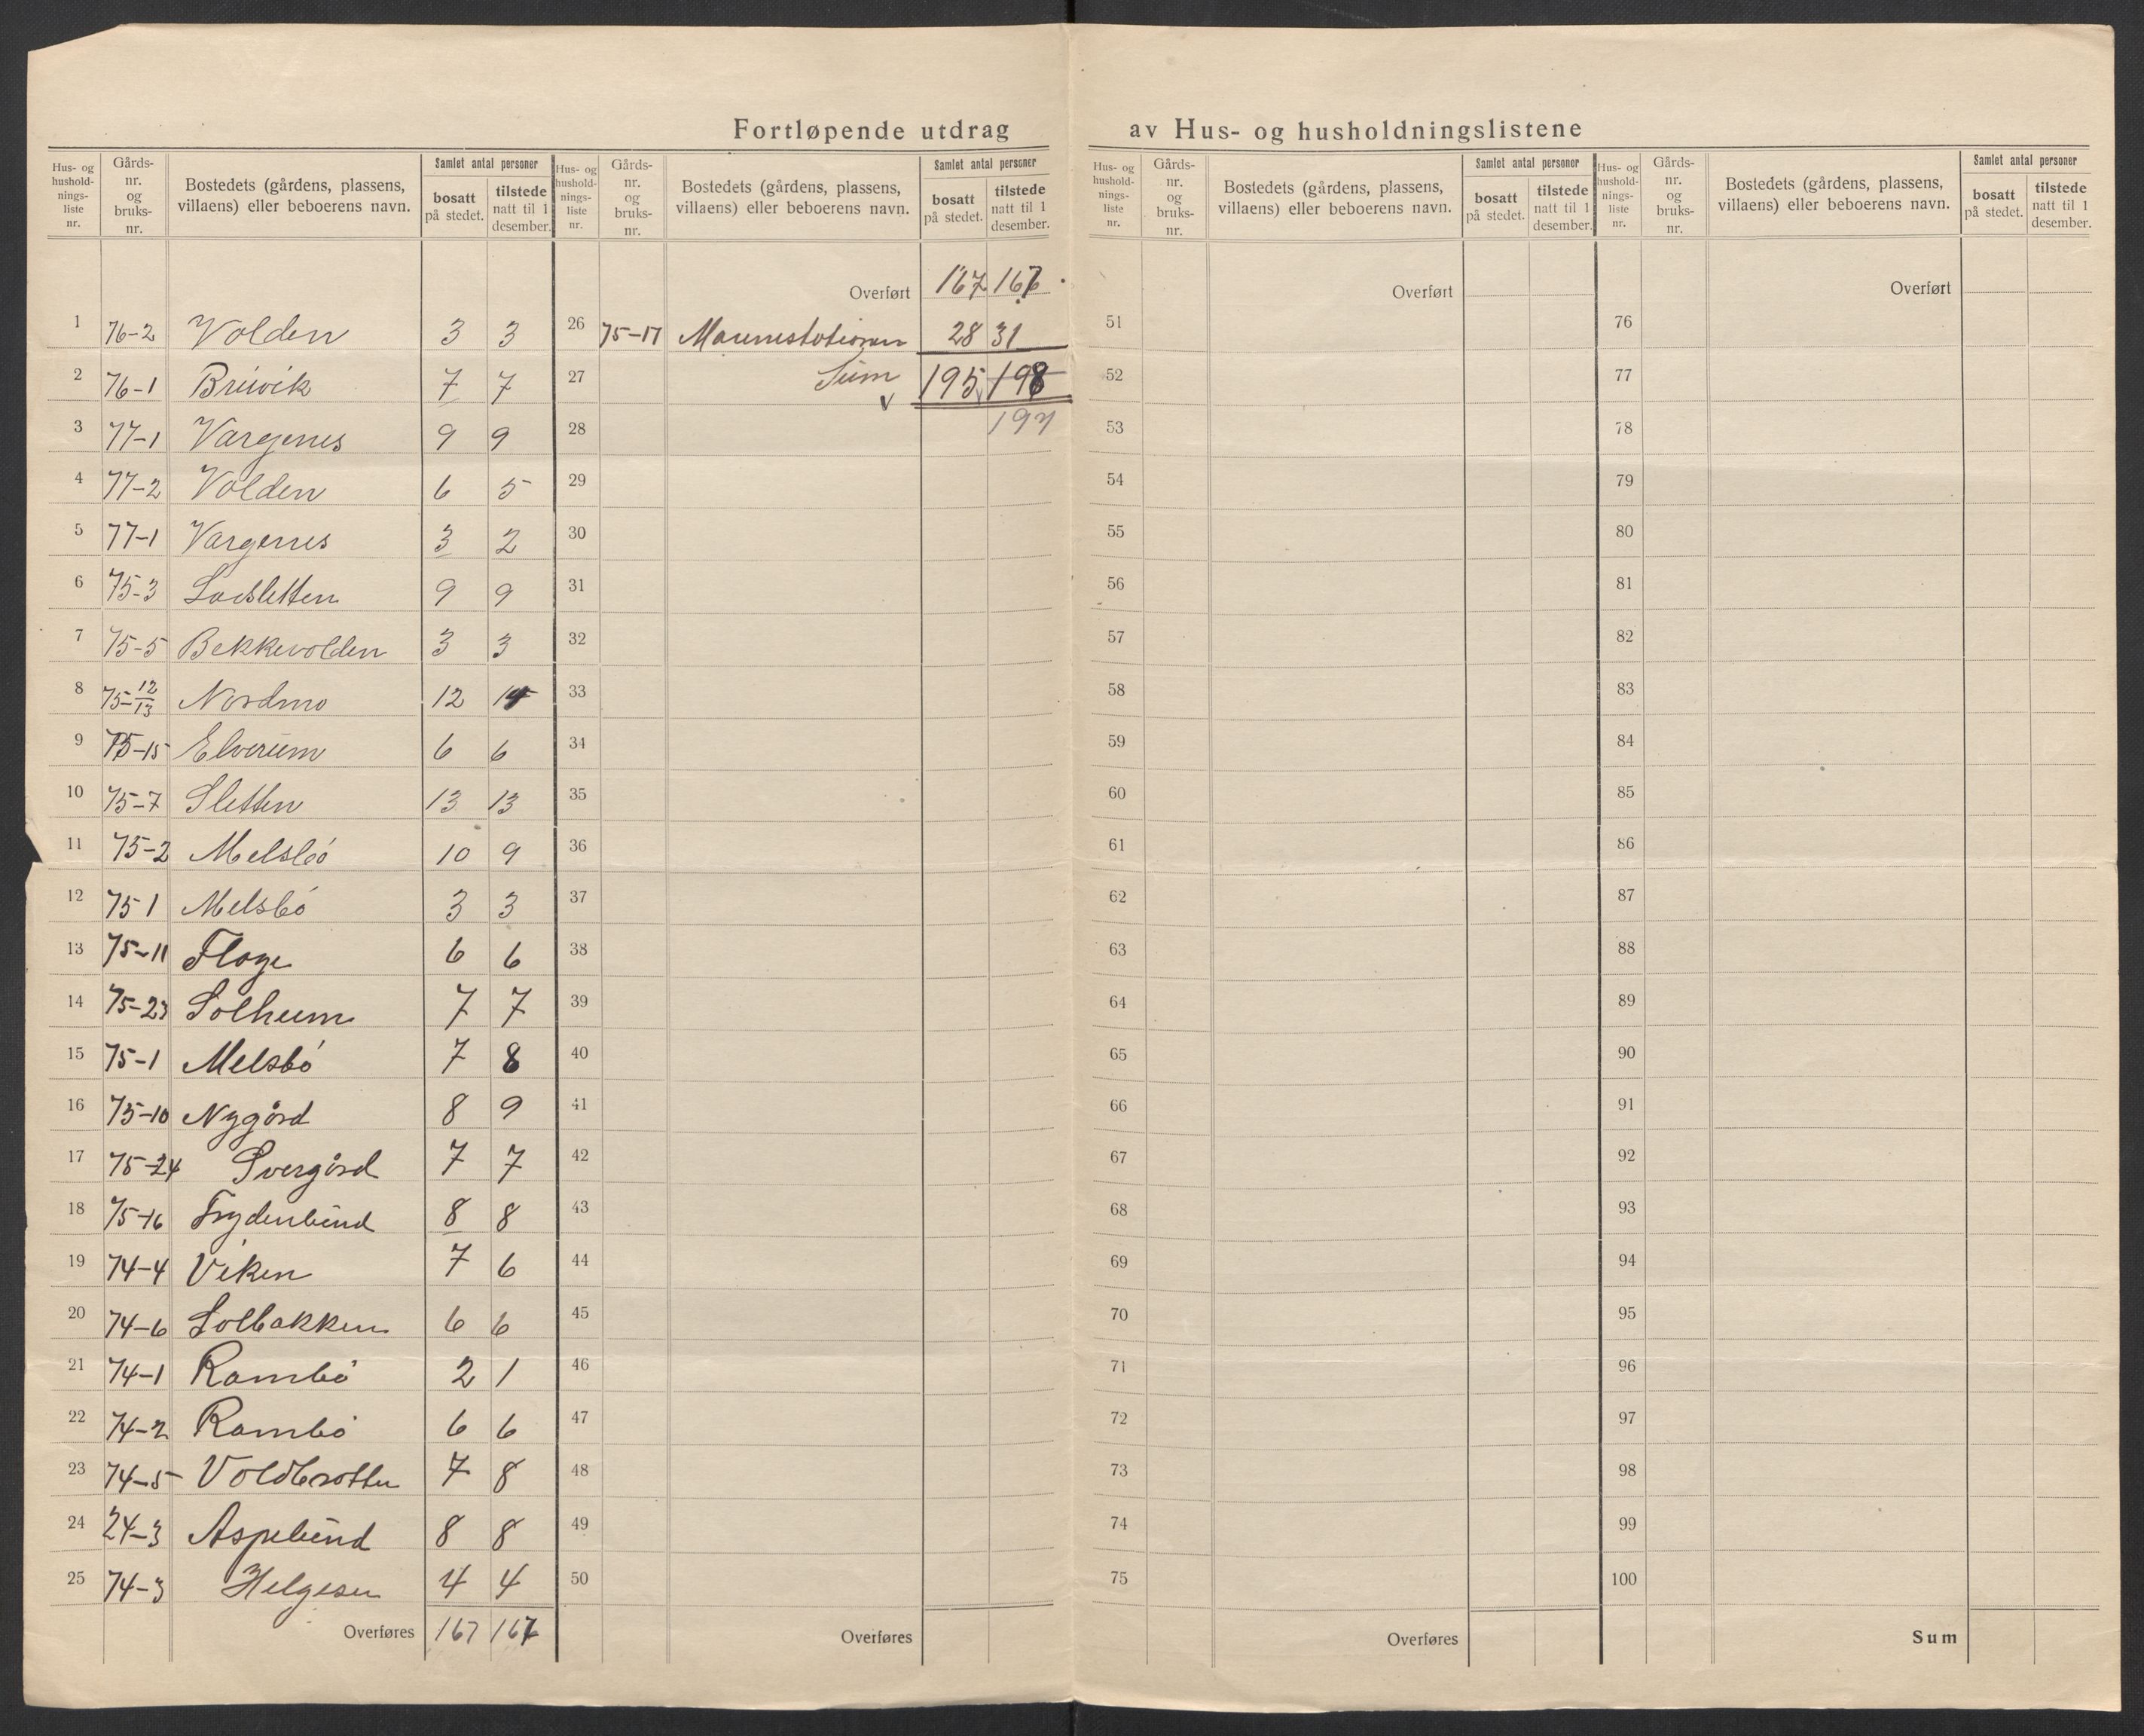 Fortløpende utdrag av Hus- og husholdningslistene
Hus- og hushold-nings-liste nr. Gårds-nr. og bruks-nr. Bostedets (gårdens, plassens, villaens) eller beboerens navn. Samlet antal personer bosatt på stedet. tilstede natt til 1 desember.
1 76-2 Volden 3 3
2 76-1 Breivik 7 7
3 77-1 Vargenes 9 9
4 77-2 Volden 6 5
5 77-1 Vargenes 3 2
6 75-3 9 9
7 75-5 Bekkevolden 3 3
8 75-12/13 Nordmo 12
9 75-15 Elverum 6 6
10 75-7 Sletten 13 13
11 75-2 Melsbö 10 9
12 75 1 Melsbö 3 3
13 75-11 6 6
14 75-23 Solheim 7 7
15 75-1 Melsbö 7 8
16 75-10 Nygård 8 9
17 75-24 7 7
18 75-16 Frydenlund 8 8
19 74-4 Viken 7 6
20 74-6 Solbakken 6 6
21 74-1 Rambö 2 1
22 74-2 Rambö 6 6
23 74-5 Voldbrotten 7 8
24 24-3 Aspelund 8 8
25 74-3 Helgesen 4 4
Overføres 167
Hus- og hushold-nings-liste nr. Gårds-nr. og bruks-nr. Bostedets (gårdens, plassens, villaens) eller beboerens navn. Samlet antal personer bosatt på stedet. tilstede natt til 1 desember.
Overført 167
26 75-17 28 31
27 Sum 195 198
28 197
29
30
31
32
33
34
35
36
37
38
39
40
41
42
43
44
45
46
47
48
49
50
Overføres
Hus- og hushold-nings-liste nr. Gårds-nr. og bruks-nr. Bostedets (gårdens, plassens, villaens) eller beboerens navn. Samlet antal personer bosatt på stedet. tilstede natt til 1 desember.
Overført
51
52
53
54
55
56
57
58
59
60
61
62
63
64
65
66
67
68
69
70
71
72
73
74
75
Overføres
Hus- og hushold-nings-liste nr. Gårds-nr. og bruks-nr. Bostedets (gårdens, plassens, villaens) eller beboerens navn. Samlet antal personer bosatt på stedet. tilstede natt til 1 desember.
Overført
76
77
78
79
80
81
82
83
84
85
86
87
88
89
90
91
92
93
94
95
96
97
98
99
100
Sum